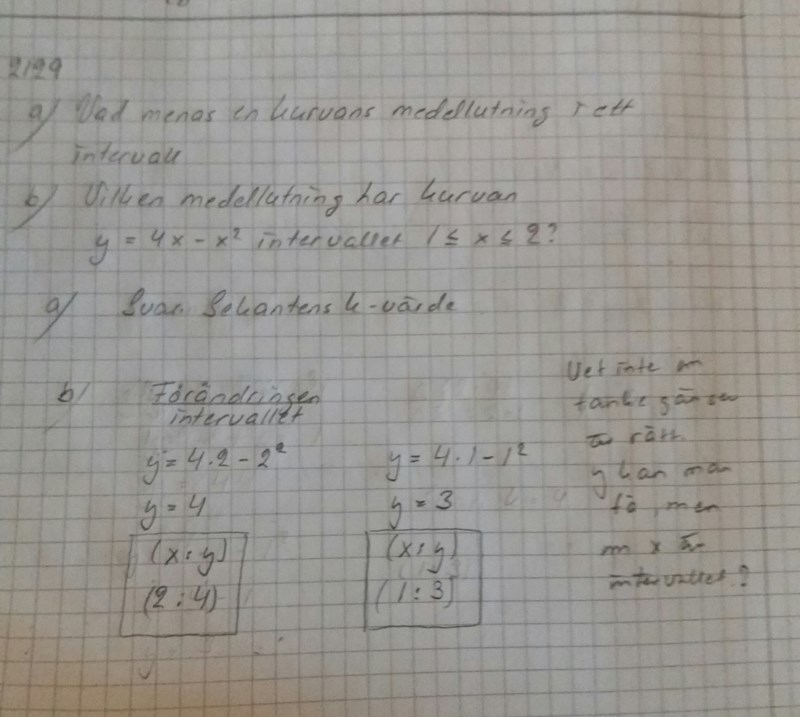 2129
a) Vad menas en kurvans medellutning i ett
intervall
b) Vilken medellutning har kurvan
y = 4x - x² intervallet 1 ≤ x ≤ 2?
a) Svar. Sekantens k-värde
b) Förändringen
intervallet
y = 4·2 - 2²
y = 4
(x : y)
(2 : 4)
y = 4·1 - 1²
y = 3
(x : y)
(1 : 3)
Vet inte m
tanke gången
är rätt.
y kan man
få, men
m x är
intervallet?